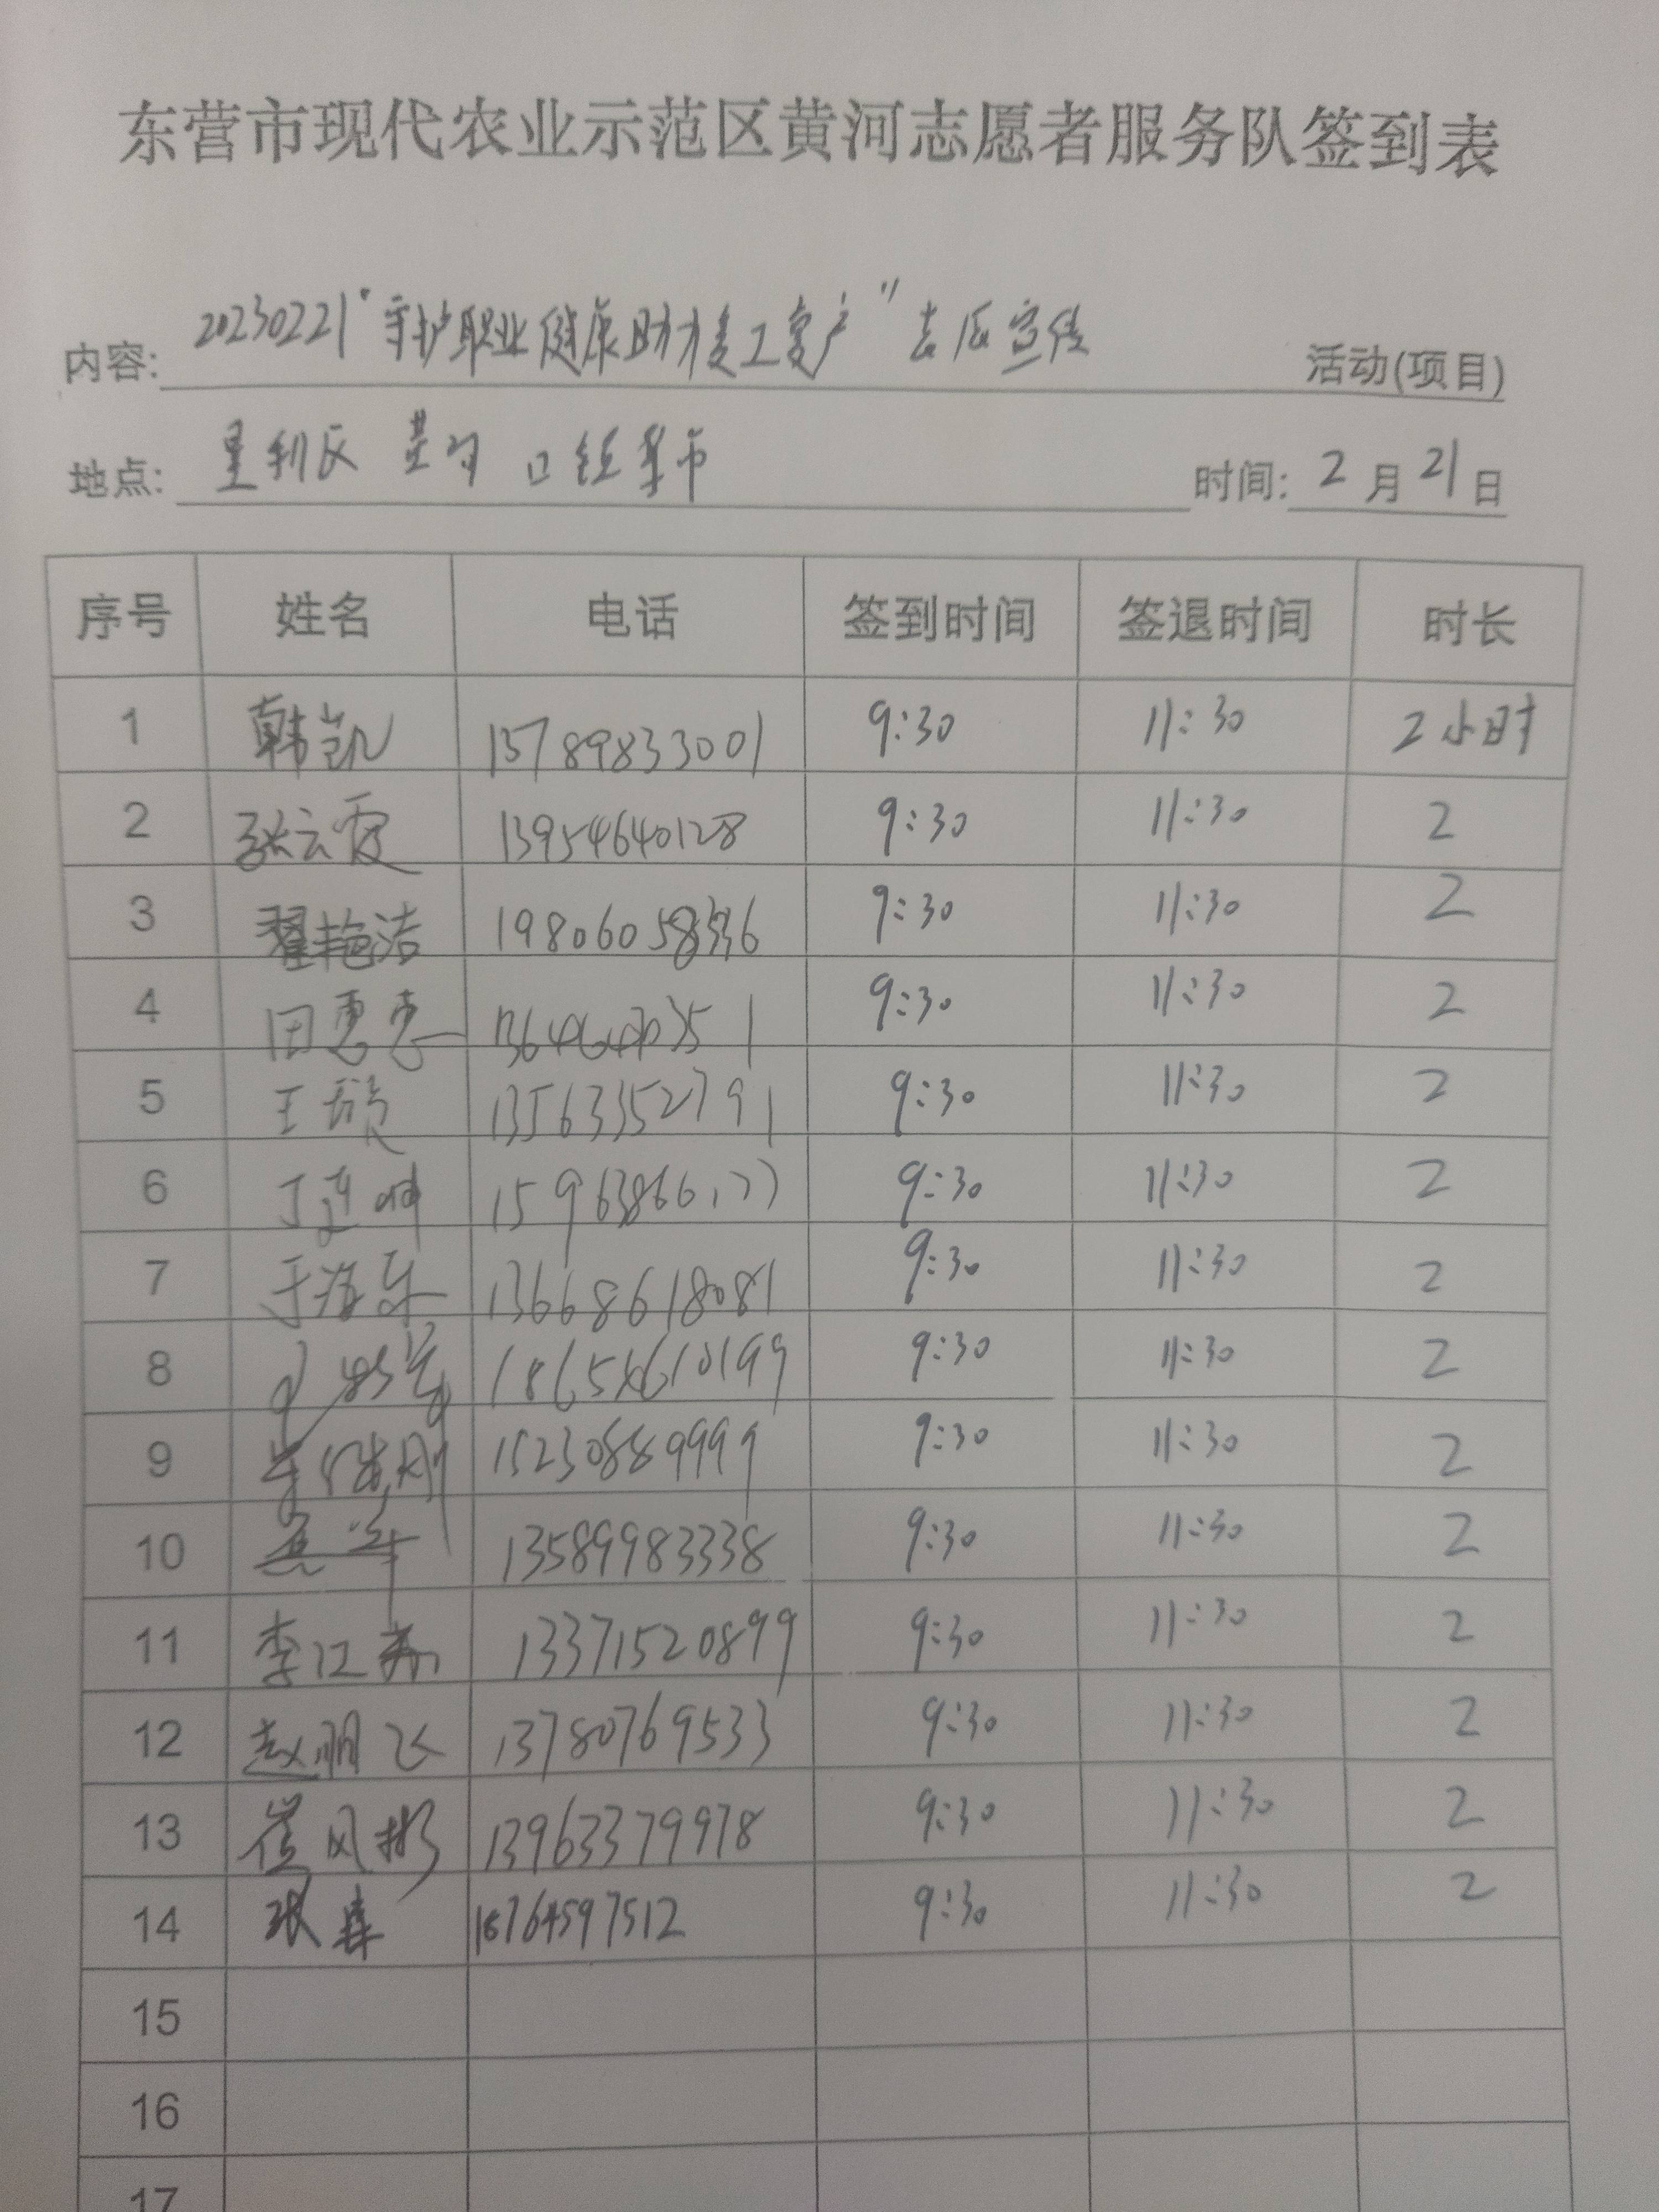 东营市现代农业示范区黄河志愿者服务队签到表
内容: 20230221"守护职业健康助力复工复产"志愿宣传 活动(项目)
地点: 垦利区 口镇集市 时间: 2月21日
序号 姓名 电话 签到时间 签退时间 时长
1 韩凯 15789833001 9:30 11:30 2小时
2 张云霞 13954640128 9:30 11:30 2
3 翟艳洁 9:30 11:30 2
4 田惠惠 9:30 11:30 2
5 王 13563352791 9:30 11:30 2
6 9:30 11:30 2
7 于海东 13668618081 9:30 11:30 2
8 18654610199 9:30 11:30 2
9 刚 15230889999 9:30 11:30 2
10 13589983338 9:30 11:30 2
11 李江 13371520899 9:30 11:30 2
12 赵鹏飞 13780769533 9:30 11:30 2
13 崔风彬 13963379978 9:30 11:30 2
14 18764597512 9:30 11:30 2
15
16
17